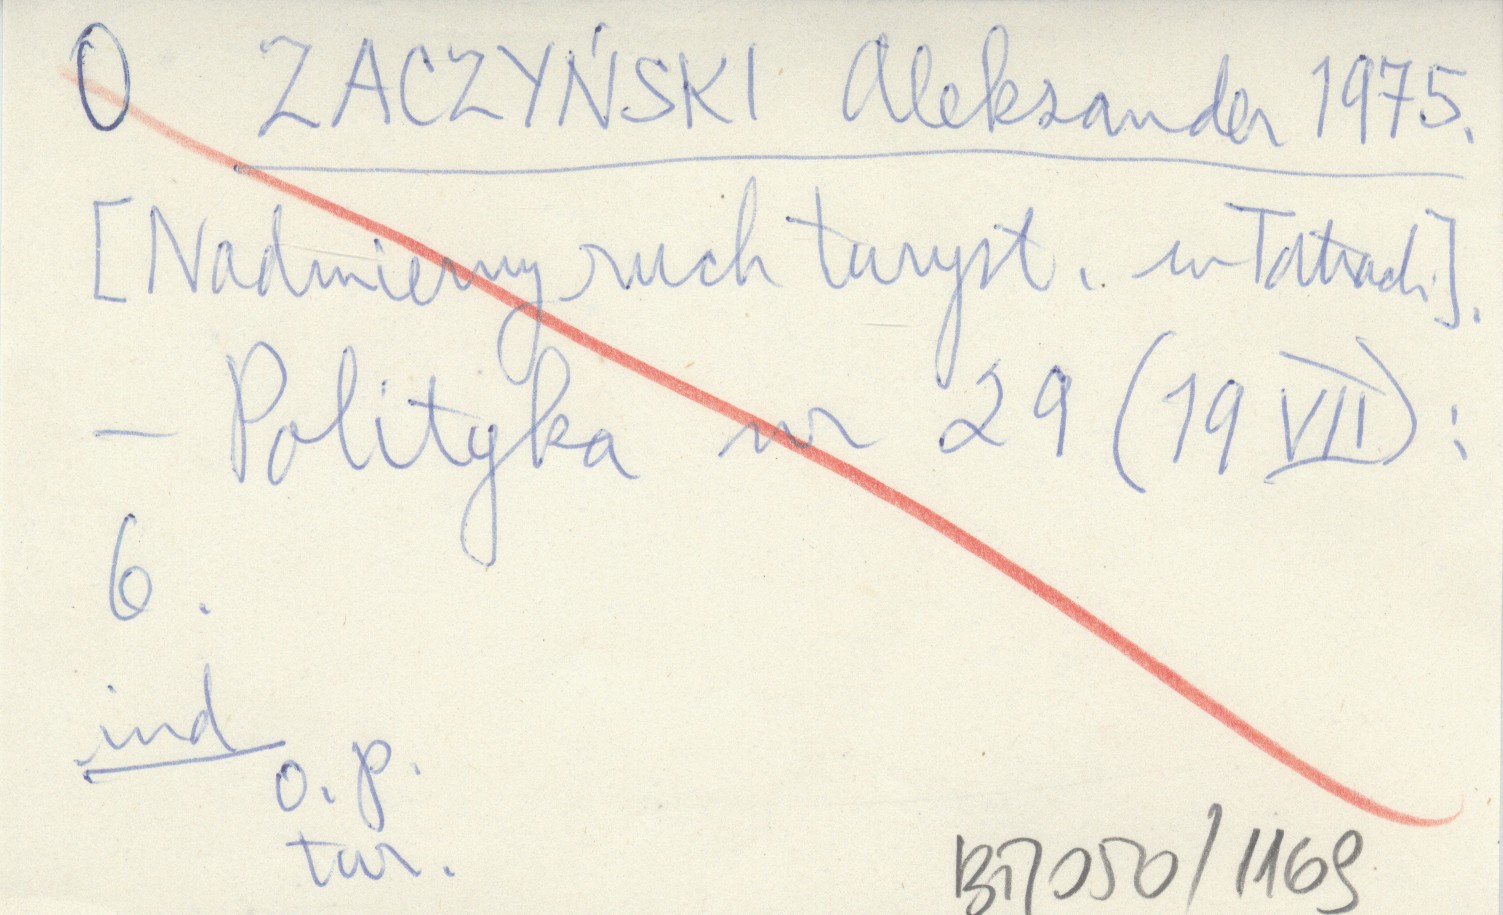 O ZACZYŃSKI Aleksander 1975.
[Nadmierny ruch turyst. w Tatrach].
– Polityka nr 29 (19 VII):
6.
ind
o. p.
tur.
050/1169